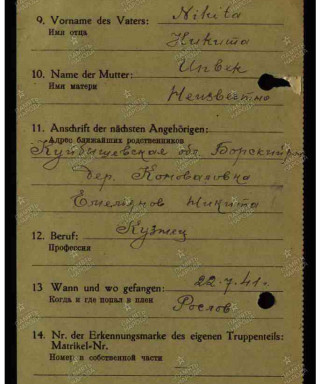 9. Vorname des Vaters: Nikita
Имя отца Никита
10. Name der Mutter:
Имя матери Неизвестно
11. Anschrift der nächsten Angehörigen:
Адрес ближайших родственников
Куйбышевская обл. Борский
дер. Коноваловка
Емельянов Никита
12. Beruf: Кузнец
Профессия
13 Wann und wo gefangen: 22.7.41.
Когда и где попал в плен Рослов
14. Nr. der Erkennungsmarke des eigenen Truppenteils:
Matrikel-Nr.
Номер в собственной части —